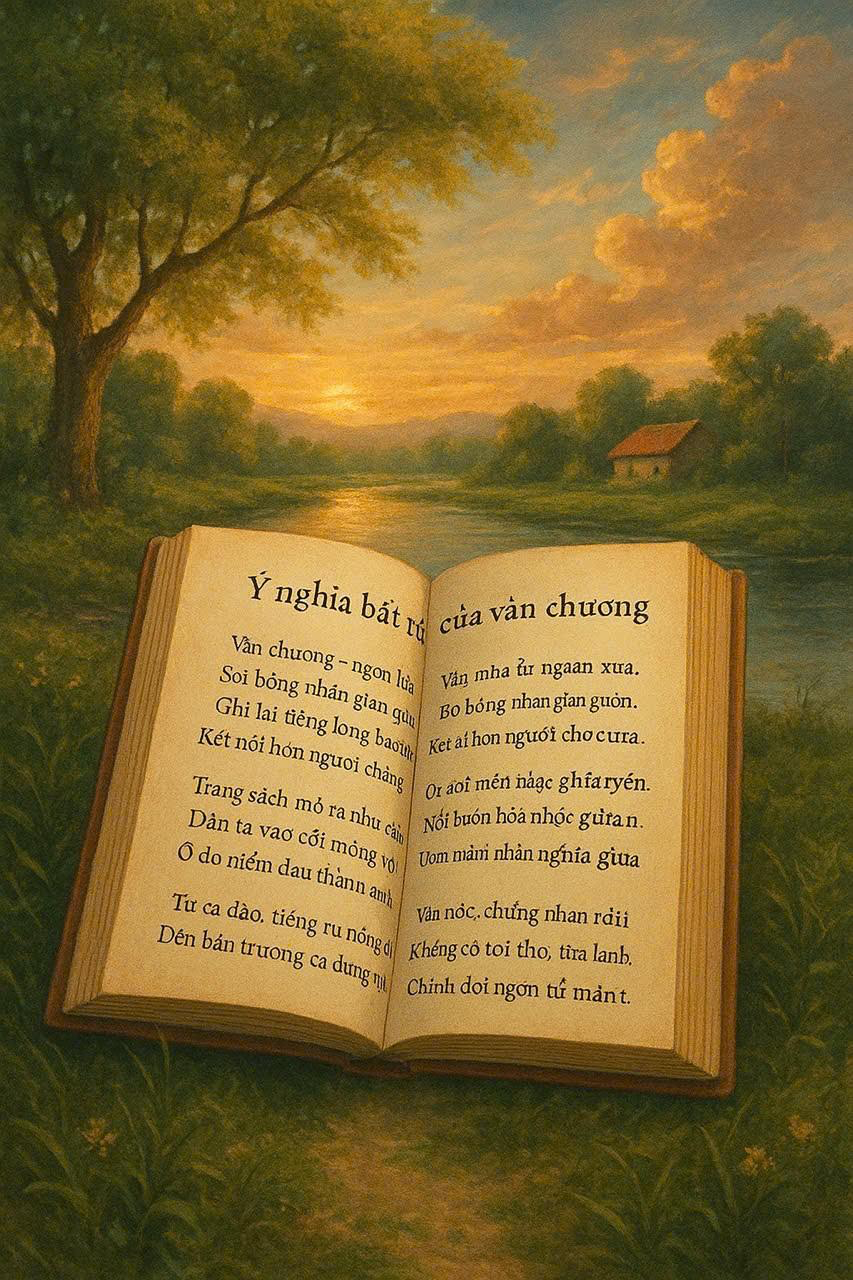 Ý nghia bất rú của vằn chương
Vẵn chương – ngon lửa
Soi bông nhán gian
Ghi lai tiêng long
Kêt nôi hón nguoi chàng
Trang sách mỏ ra như
Dân ta vaơ cỡi mỏng
Ô do niểm dau thành anh
Tư ca dào. tiéng ru nóng
Dên bán truong ca dưng
Vằn mha từ ngaan xưa.
Bo bóng nhan gian guòn.
Ket ai hon người cho cưra.
Or aoi mén nàạc ghiaryén.
Nỗi buón hoá nhọc giưan.
Uom màni nhàn nghĩa giưa
Vản nôc,. chưng nhan rdii
Khéng cô toi tho, tưa lanh.
Chính doi ngơn từ mànt.